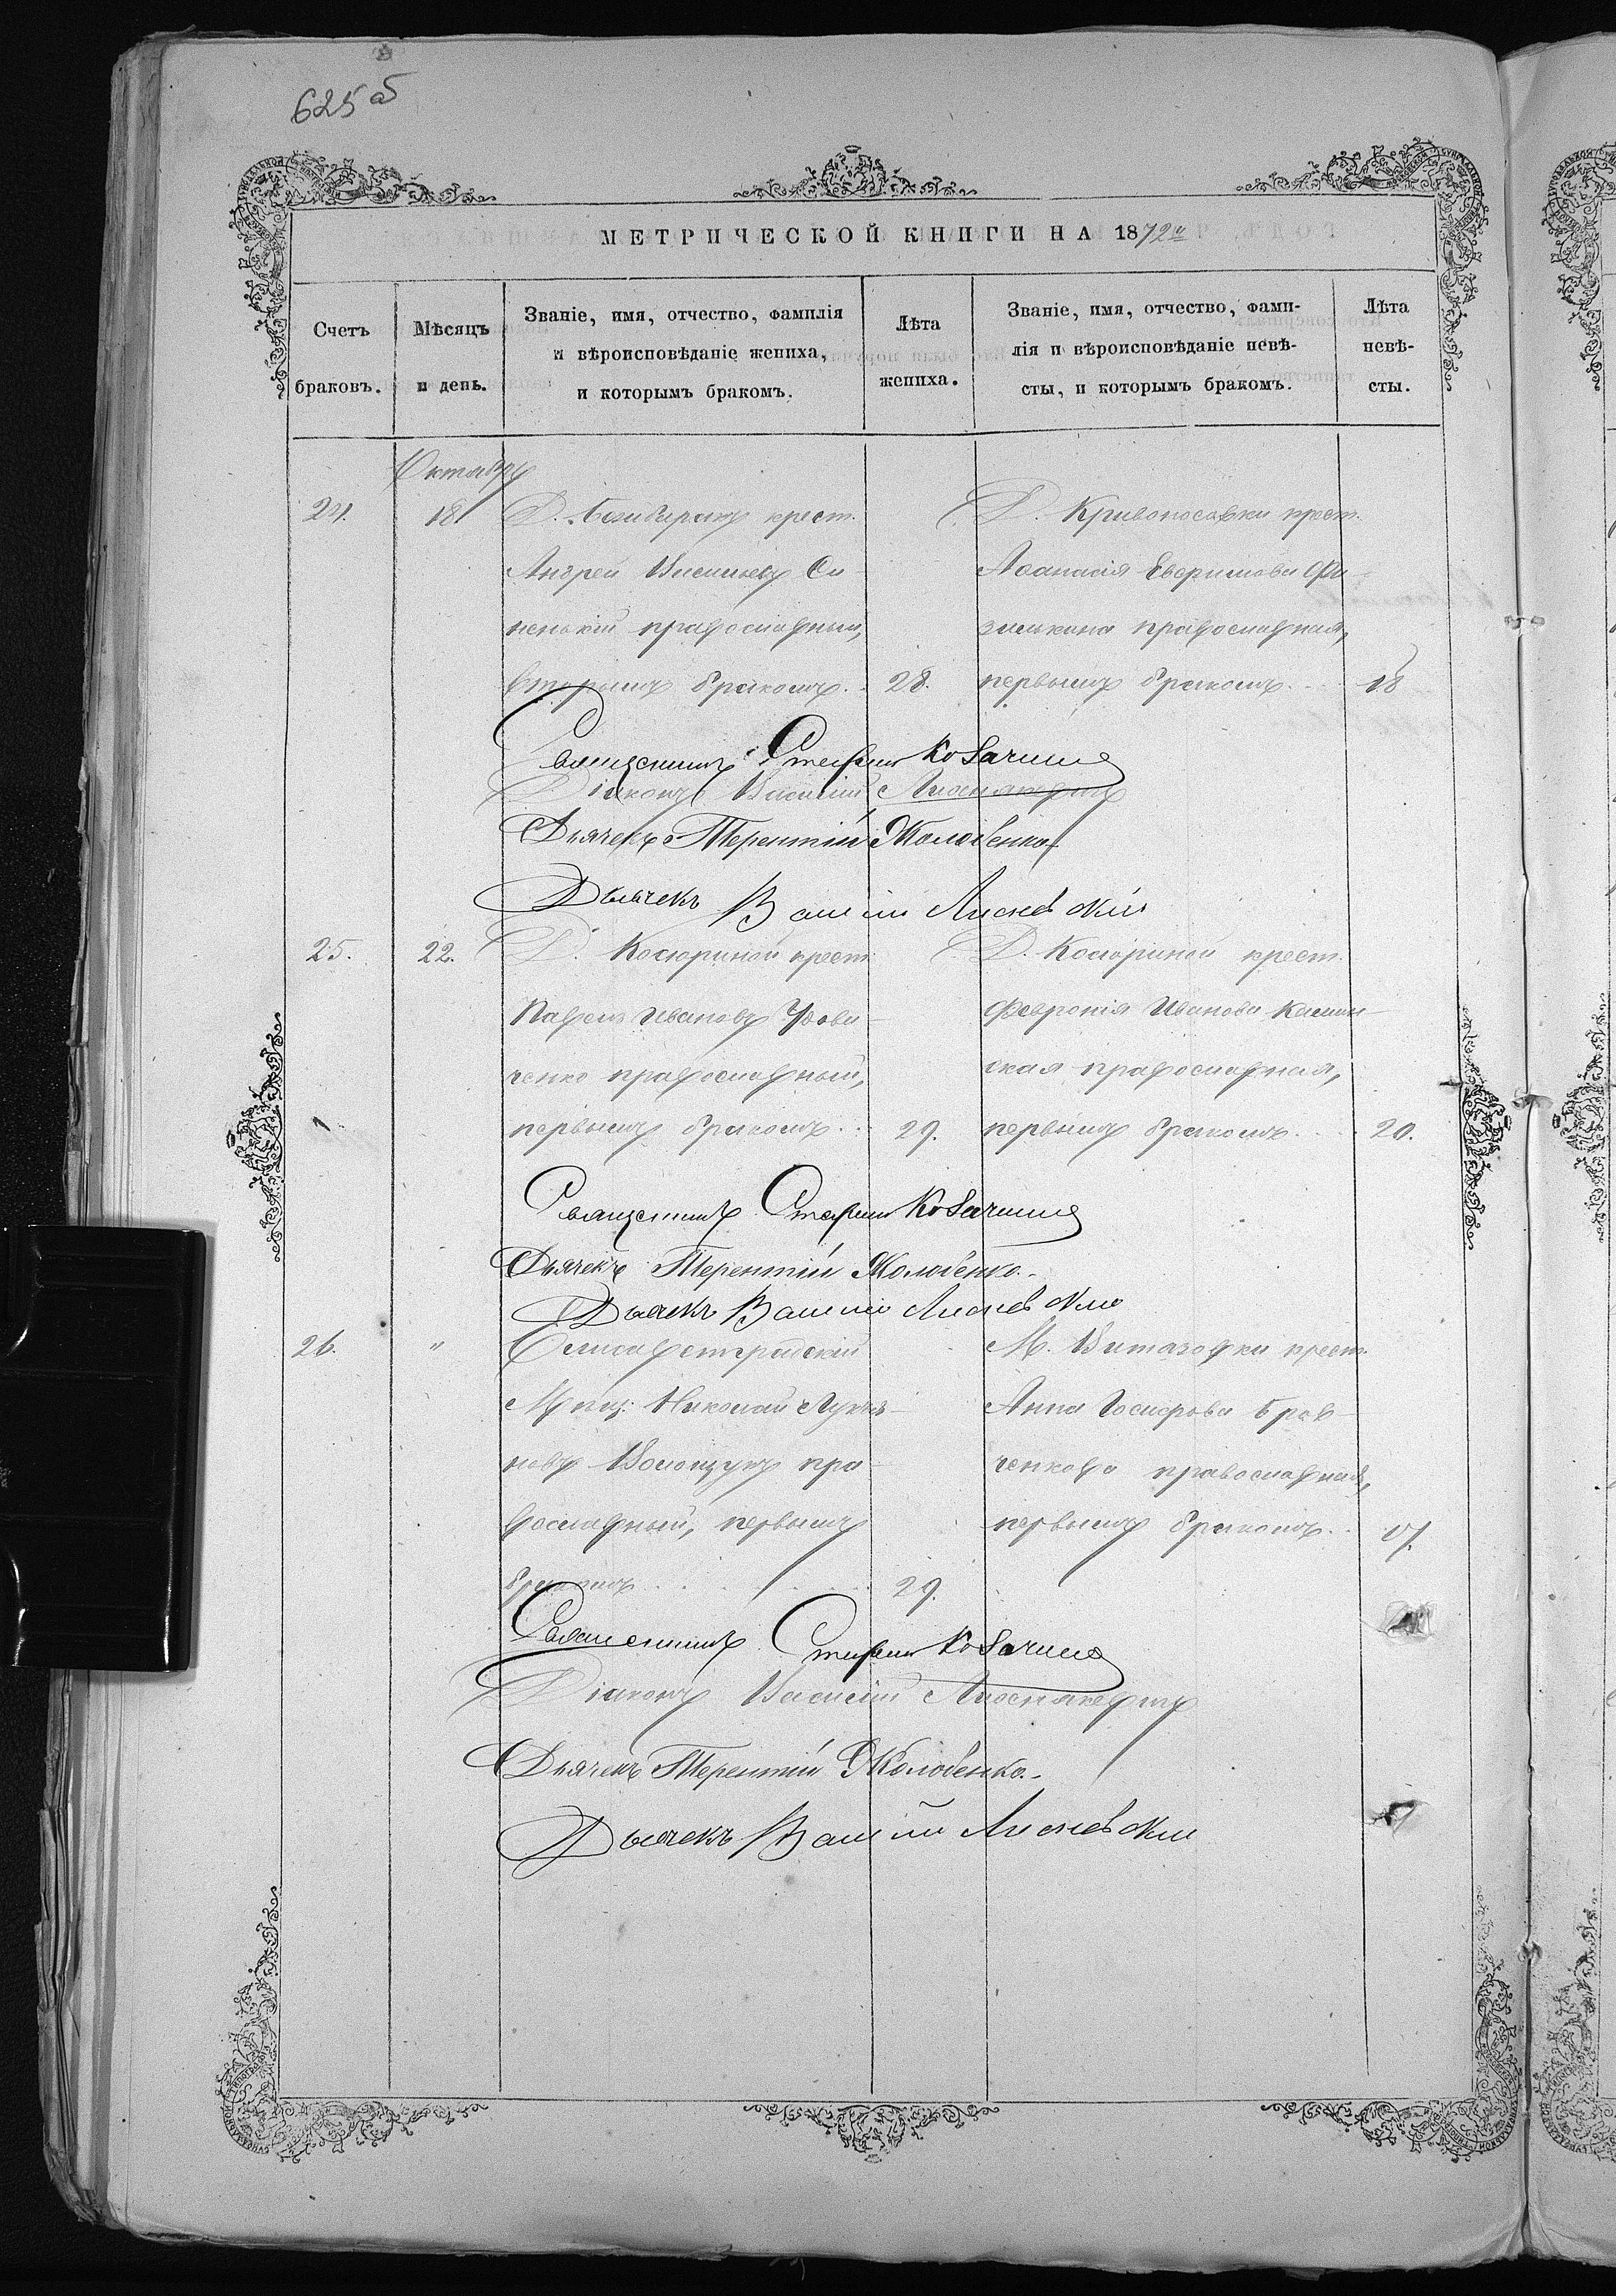 625 об
МЕТРИЧЕСКОЙ КНИГИ НА 1872й
Счетъ браковъ.
Мѣсяцъ и день.
Званіе, имя, отчество, фамилія
и вѣроисповѣданіе жениха,
и которымъ бракомъ.
Лѣта жениха.
Званіе, имя, отчество, фами-
лія и вѣроисповѣданіе невѣ-
сты, и которымъ бракомъ.
Лѣта невѣ-
сты.
Октябрь
24. 18
Д. крест.
Андрей Васильевъ Си
ненькій православный,
вторымъ бракомъ. 28.
Д. Кривоносовки крест.
Афанасія Евфимова
православная,
первымъ бракомъ. 18
Священникъ Стефанъ Козачина
Діаконъ Василій
Дьячекъ Терентій Жолобенко
Дьячекъ Василій Лисневскій
25. 22.
Д. Косюриной крест.
Павелъ Ивановъ Удови-
ченко православный,
первымъ бракомъ. 29.
Д. Косюриной крест.
Феvронія Иванова Камин-
ская православная,
первымъ бракомъ. 20.
Священникъ Стефанъ Козачина
Дьячекъ Терентій Жолобенко.
Дьячекъ Василій Лисневскій
26. "
Елисаветградскій
Мѣщ: Николай Лукья-
новъ Волощукъ пра-
вославный, первымъ
бракомъ 29.
М. Витязовки крест.
Анна Іосифова Крав-
ченкова православная,
первымъ бракомъ. 17.
Священникъ Стефанъ Козачина
Діаконъ Василій
Дьячекъ Терентій Жолобенко.
Дьячекъ Василій Лисневскій